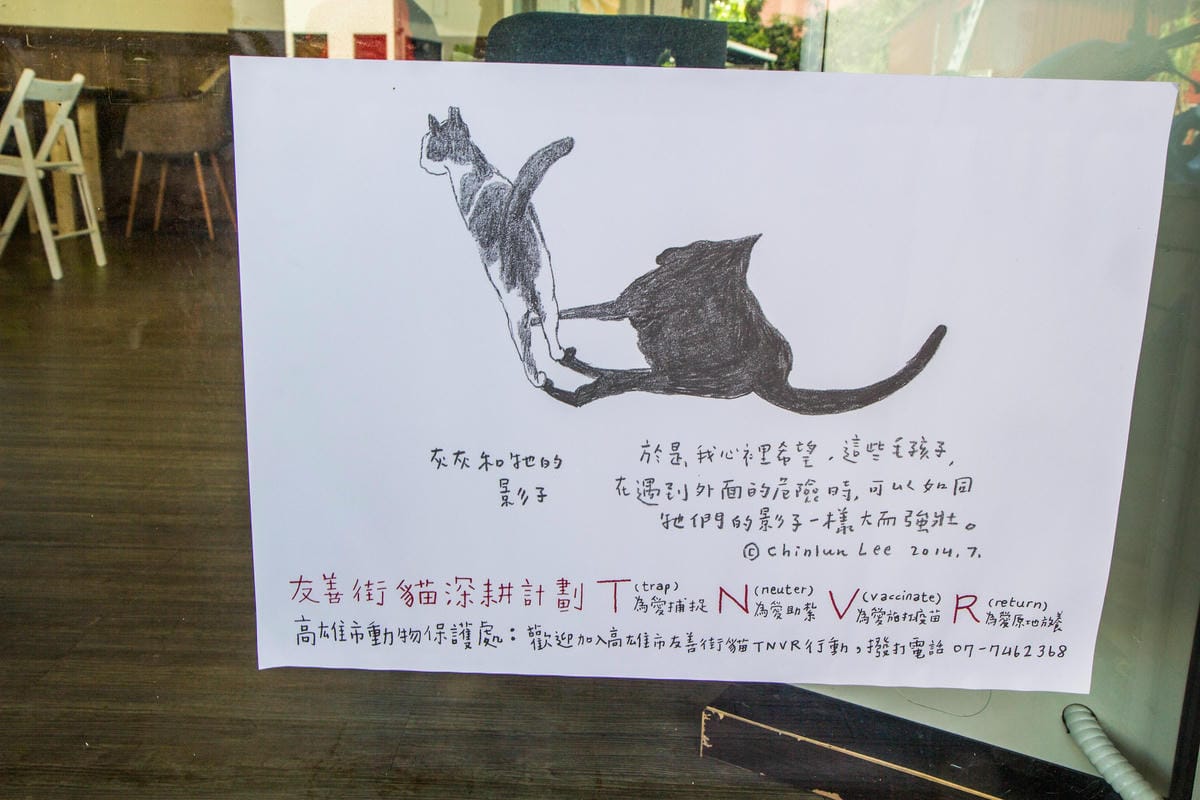 灰灰和牠的
影子
於是,我心裡希望,這些毛孩子,
在遇到外面的危險時,可以如同
牠們的影子一樣大而強壯。
© Chinlun Lee 2014.7.
友善街貓深耕計劃 T (trap) 為愛捕捉 N (neuter) 為愛助紮 V (vaccinate) 為愛施打疫苗 R (return) 為愛原地放養
高雄市動物保護處:歡迎加入高雄市友善街貓TNVR行動,撥打電話 07-7462368